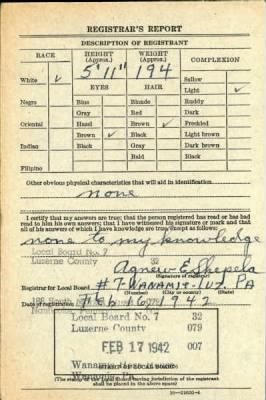 REGISTRAR'S REPORT
DESCRIPTION OF REGISTRANT
RACE HEIGHT (Approx.) WEIGHT (Approx.) COMPLEXION
5' 11" 194
White ✓ Sallow
EYES HAIR Light ✓
Negro Blue Blonde Ruddy
Gray Red Dark
Oriental Hazel Brown ✓ Freckled
Brown ✓ Black Light brown
Indian Black Gray Dark brown
Bald Black
Filipino
Other obvious physical characteristics that will aid in identification
none
I certify that my answers are true; that the person registered has read or has had
read to him his own answers; that I have witnessed his signature or mark and that
all of his answers of which I have knowledge are true, except as follows:
none to my knowledge
Local Board No. 7
Luzerne County
Agnew E. Shepela
(Signature of registrar)
Registrar for Local Board #7-WANAMIE-LUZ. PA
(Number) (City or county) (State)
Date of registration FEB 16, 1942
Local Board No. 7 32
Luzerne County 079
FEB 17 1942 007
Wanamie
(STAMP OF LOCAL BOARD)
(The stamp of the Local Board having jurisdiction of the registrant
shall be placed in the above space)